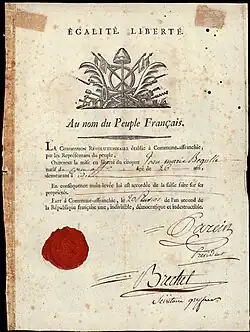 ÉGALITÉ LIBERTÉ.
Au nom du Peuple Français.
LA COMMISSION RÉVOLUTIONNAIRE établie à Commune-affranchie,
par les Représentans du peuple,
Ordonne la mise en liberté du citoyen Jean marie
natif de âgé de 20 ans,
demeurant à
En conséquence main-levée lui est accordée de la saisie faite sur ses
propriétés.
Fait à Commune-affranchie, le de l'an second de
la République française une, indivisible, démocratique et indestructible.
Parein
Président
Brechet
Secrétaire greffier